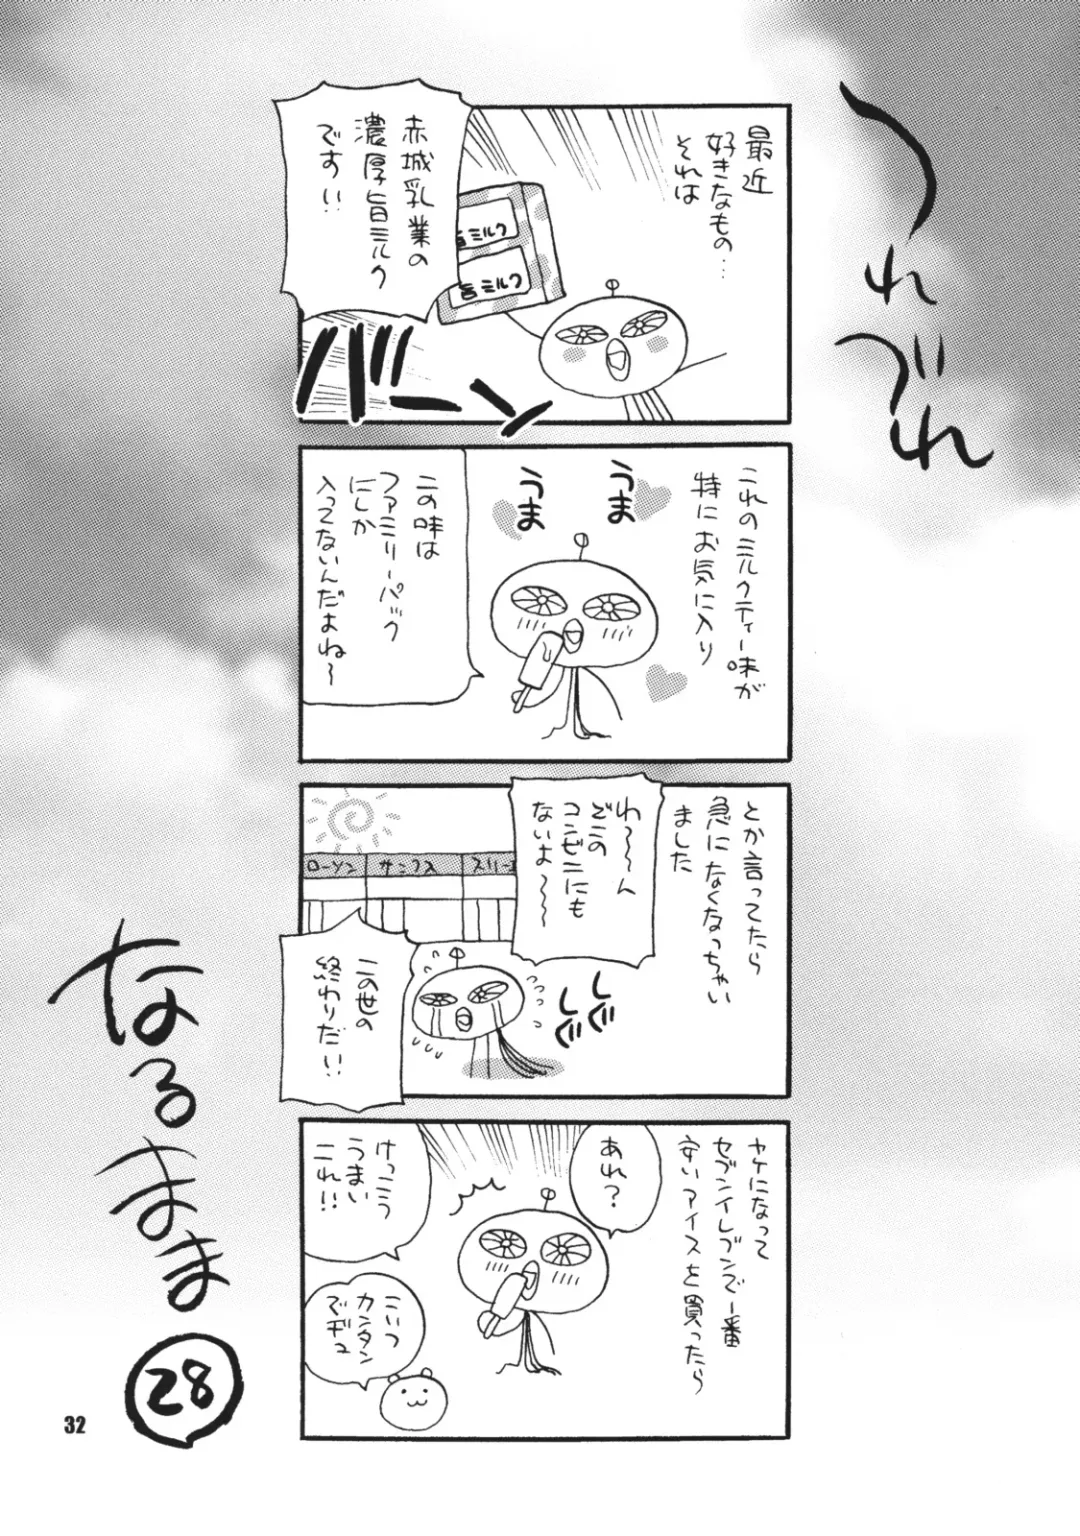 つれでれ
なるまま
28
最近
好きなもの…
それは
赤城乳業の
濃厚旨ミルク
です!!
旨ミルク
旨ミルク
バーン
これのミルクティー味が
特にお気に入り
うま
うま
この味は
ファミリーパック
にしか
入ってないんだよね〜
とか言ってたら
急になくなっちゃい
ました
わ〜〜〜ん
どこの
コンビニにも
ないよ〜〜〜
ローソン
サンクス
スリーエ
しぐ
しぐ
この世の
終わりだ!!
ヤケになって
セブンイレブンで一番
安いアイスを買ったら
あれ?
けっこう
うまい
コレ!!
こいつ
カンタン
でヂュ
32